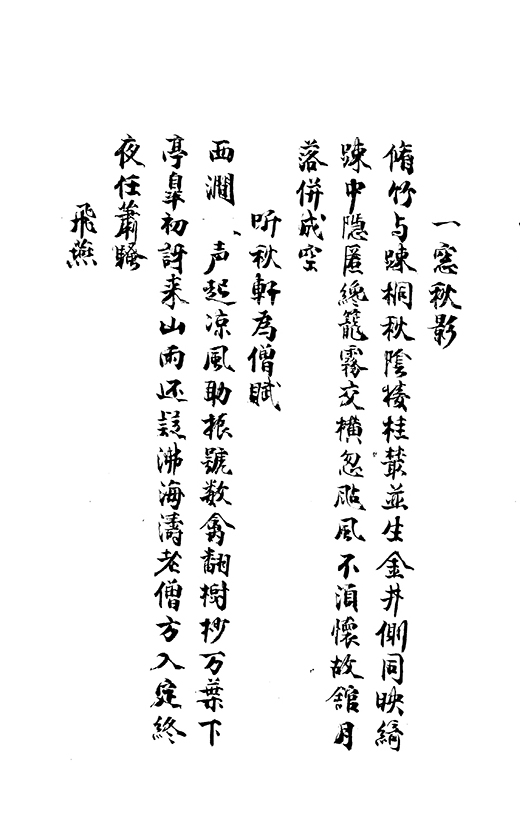 一窓秋影
脩竹与疎桐秋陰接桂叢並生金井側同映綺
疎中隠匿纔籠霧交横忽颭風不湏懐故舘月
落併成空
听秋軒為僧賦
西澗一声起凉風助振號数禽翻樹杪万葉下
亭皐初訝来山雨还疑沸海濤老僧方入定終
夜任蕭騒
飛燕